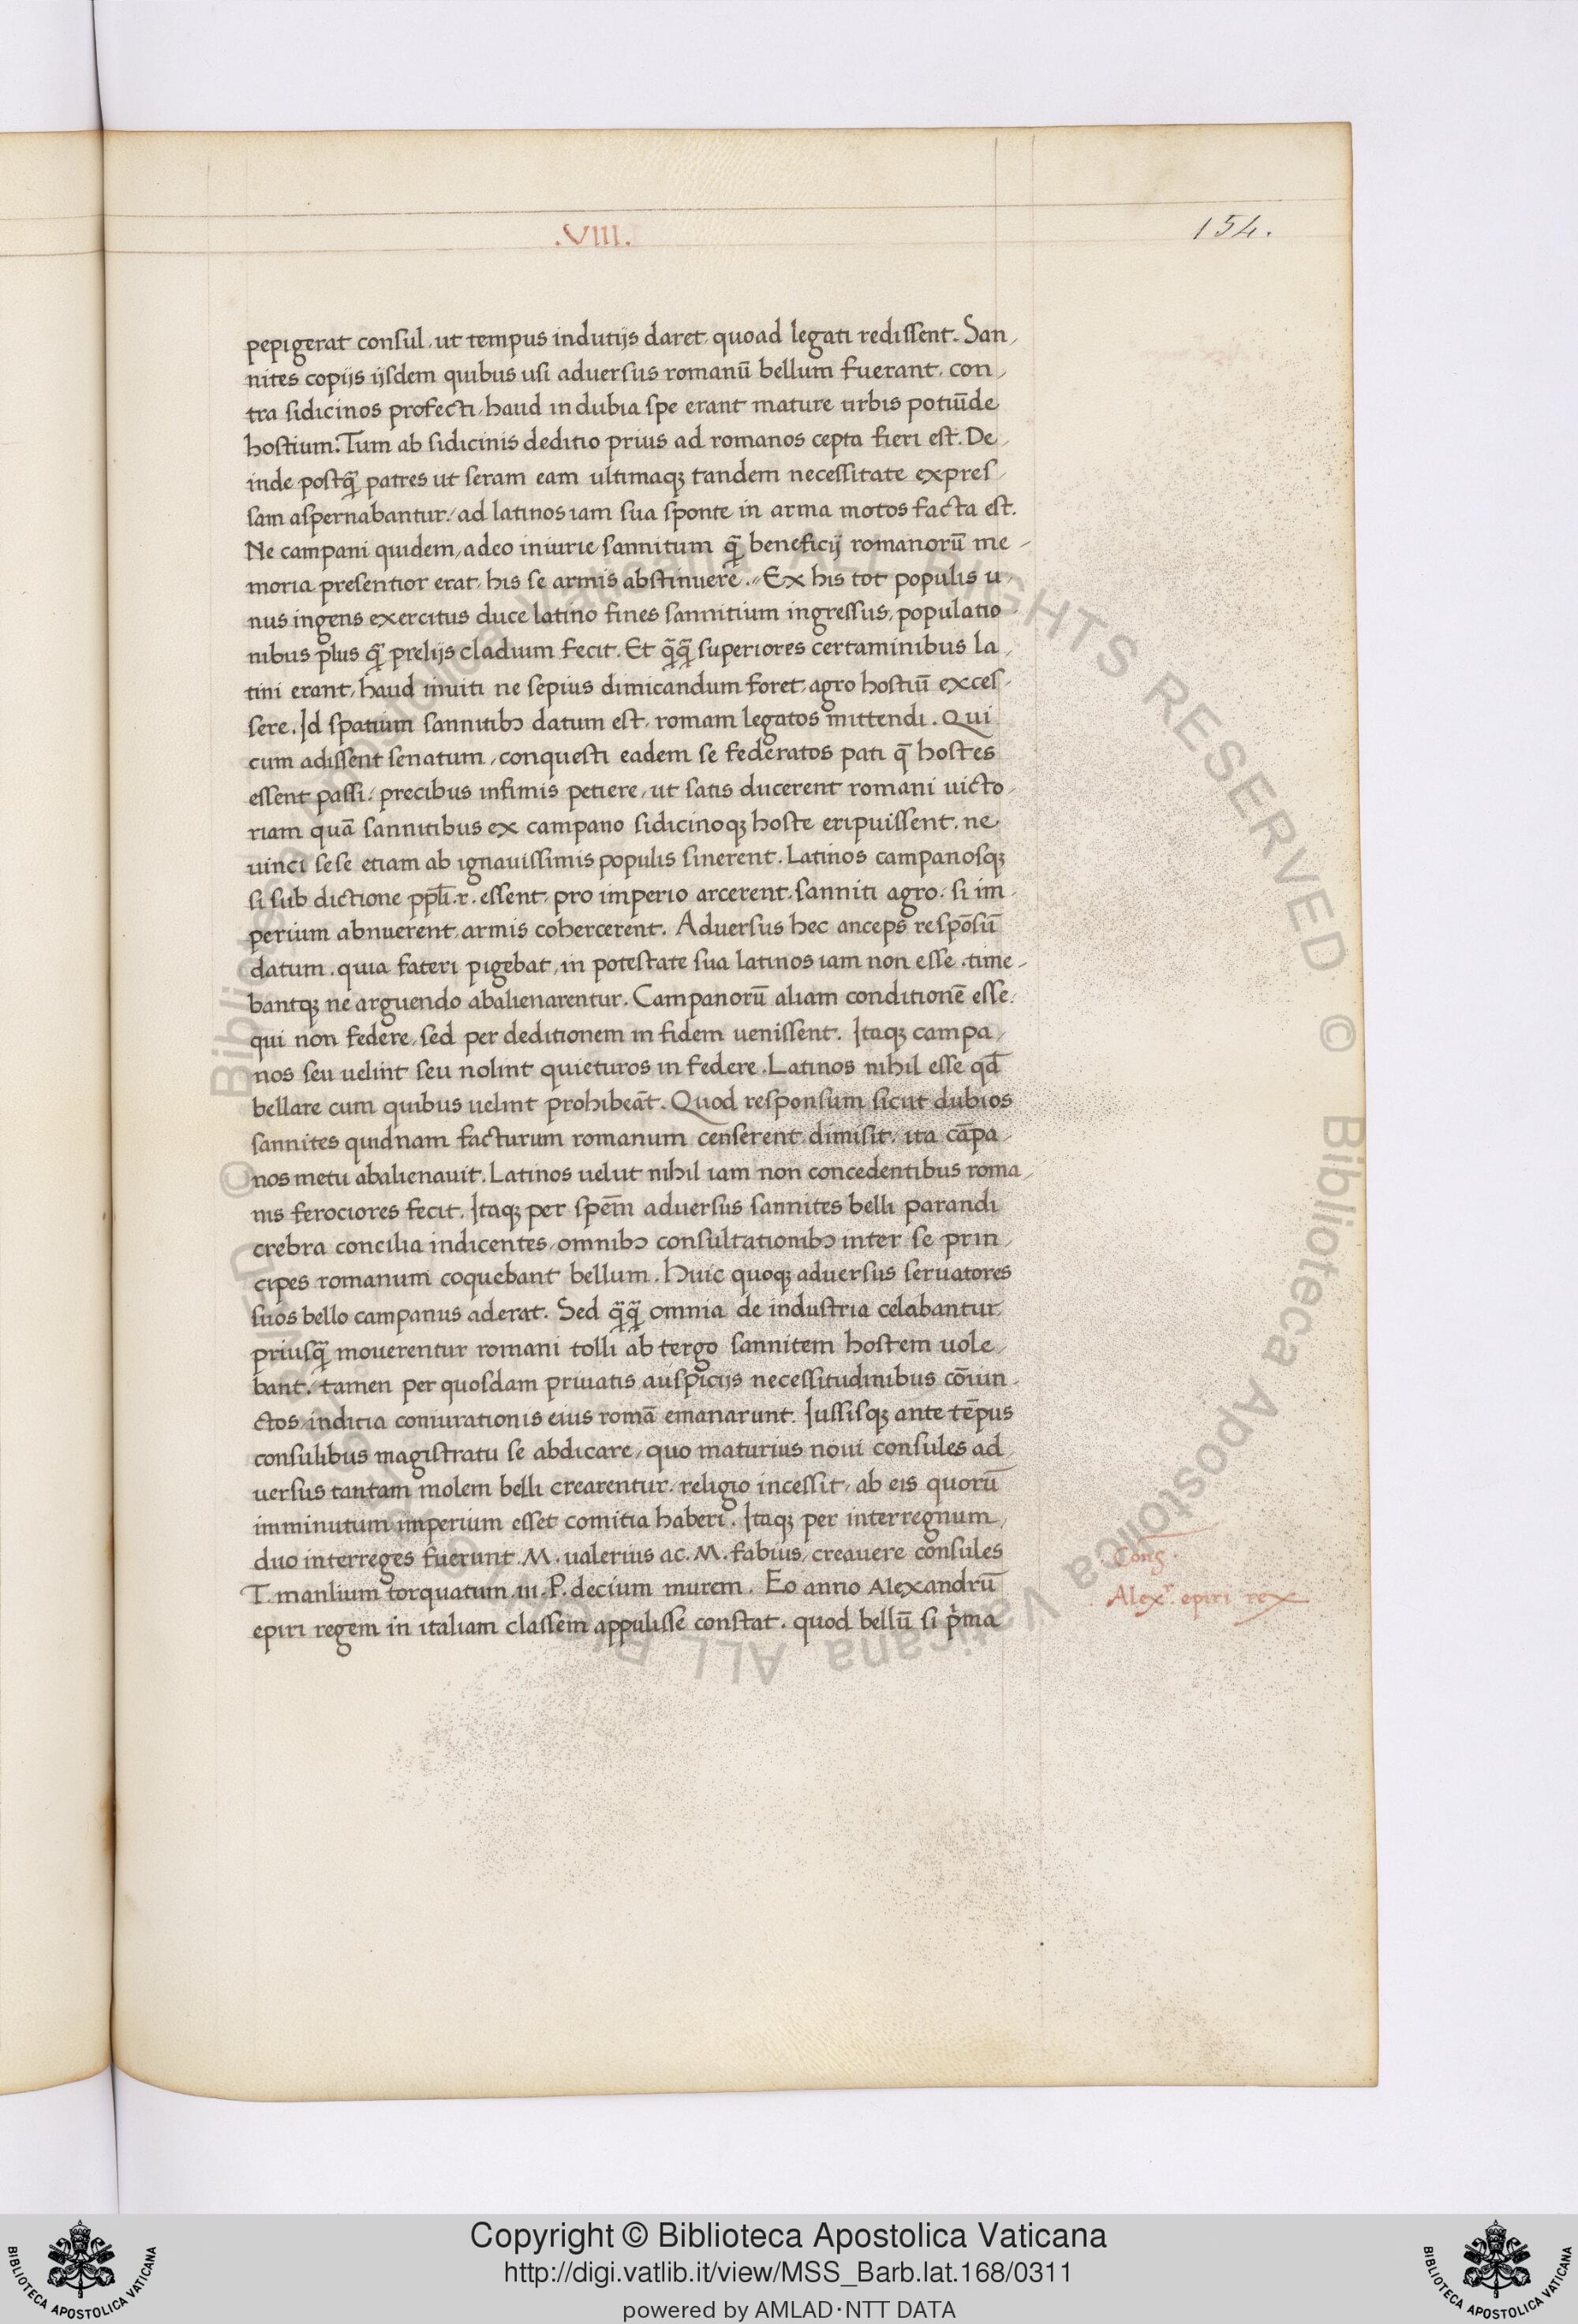 .VIII.
154.
pepigerat consul, ut tempus indutijs daret, quoad legati redissent. San,
nites copijs ijsdem quibus usi aduersus romanū bellum fuerant, con,
tra sidicinos profecti, haud in dubia spe erant mature urbis potiūde
hostium. Tum ab sidicinis deditio prius ad romanos cepta fieri est. De,
inde postq̄ patres ut seram eam ultimaqꝫ tandem necessitate expres,
sam aspernabantur, ad latinos iam sua sponte in arma motos facta est.
Ne campani quidem, adeo iniurie sannitum q̄ beneficij romanorū me,
moria presentior erat, his se armis abstinuere. Ex his tot populis u,
nus ingens exercitus duce latino fines sannitium ingressus, populatio,
nibus plus q̄ prelijs cladium fecit. Et q̄q̄ superiores certaminibus la,
tini erant, haud inuiti ne sepius dimicandum foret, agro hostiū exces,
sere. Id spatium sannitibꝰ datum est, romam legatos mittendi. Qui
cum adissent senatum, conquesti eadem se federatos pati q̄ hostes
essent passi, precibus infimis petiere, ut satis ducerent romani uicto,
riam quā sannitibus ex campano sidicinoqꝫ hoste eripuissent, ne
uinci sese etiam ab ignauissimis populis sinerent. Latinos campanosqꝫ
si sub dictione ppli̅.r. essent, pro imperio arcerent, sanniti agro, si im,
perium abnuerent, armis cohercerent. Aduersus hec anceps respōsū
datum. quia fateri pigebat, in potestate sua latinos iam non esse, time,
bantqꝫ ne arguendo abalienarentur. Campanorū aliam conditionē esse.
qui non federe, sed per deditionem in fidem uenissent. Itaqꝫ campa,
nos seu uelint seu nolint quieturos in federe. Latinos nihil esse qd̄
bellare cum quibus uelint prohibeāt. Quod responsum sicut dubios
sannites quidnam facturum romanum censerent dimisit, ita cāpa,
nos metu abalienauit. Latinos uelut nihil iam non concedentibus roma,
nis ferociores fecit. Itaqꝫ per spem̄ aduersus sannites belli parandi
crebra concilia indicentes, omnibꝰ consultationibꝰ inter se prin,
cipes romanum coquebant bellum. Huic quoqꝫ aduersus seruatores
suos bello campanus aderat. Sed q̄q̄ omnia de industria celabantur
priusq̄ mouerentur romani tolli ab tergo sannitem hostem uole,
bant, tamen per quosdam priuatis auspicijs necessitudinibus cōiun,
ctos, inditia coniurationis eius romā emanarunt. Iussisqꝫ ante tēpus
consulibus magistratu se abdicare, quo maturius noui consules ad
uersus tantam molem belli crearentur, religio incessit, ab eis quorū
imminutum imperium esset comitia haberi. Itaqꝫ per interregnum,
duo interreges fuerunt .M. ualerius ac .M. fabius, creauere consules
T. manlium torquatum .iii. P. decium murem. Eo anno Alexandrū
epiri regem in italiam classem appulisse constat. quod bellū si p̍ma
Cons̄.
Alexʳ. epiri rex
Copyright © Biblioteca Apostolica Vaticana
http://digi.vatlib.it/view/MSS_Barb.lat.168/0311
powered by AMLAD·NTT DATA
BIBLIOTECA APOSTOLICA VATICANA
BIBLIOTECA APOSTOLICA VATICANA